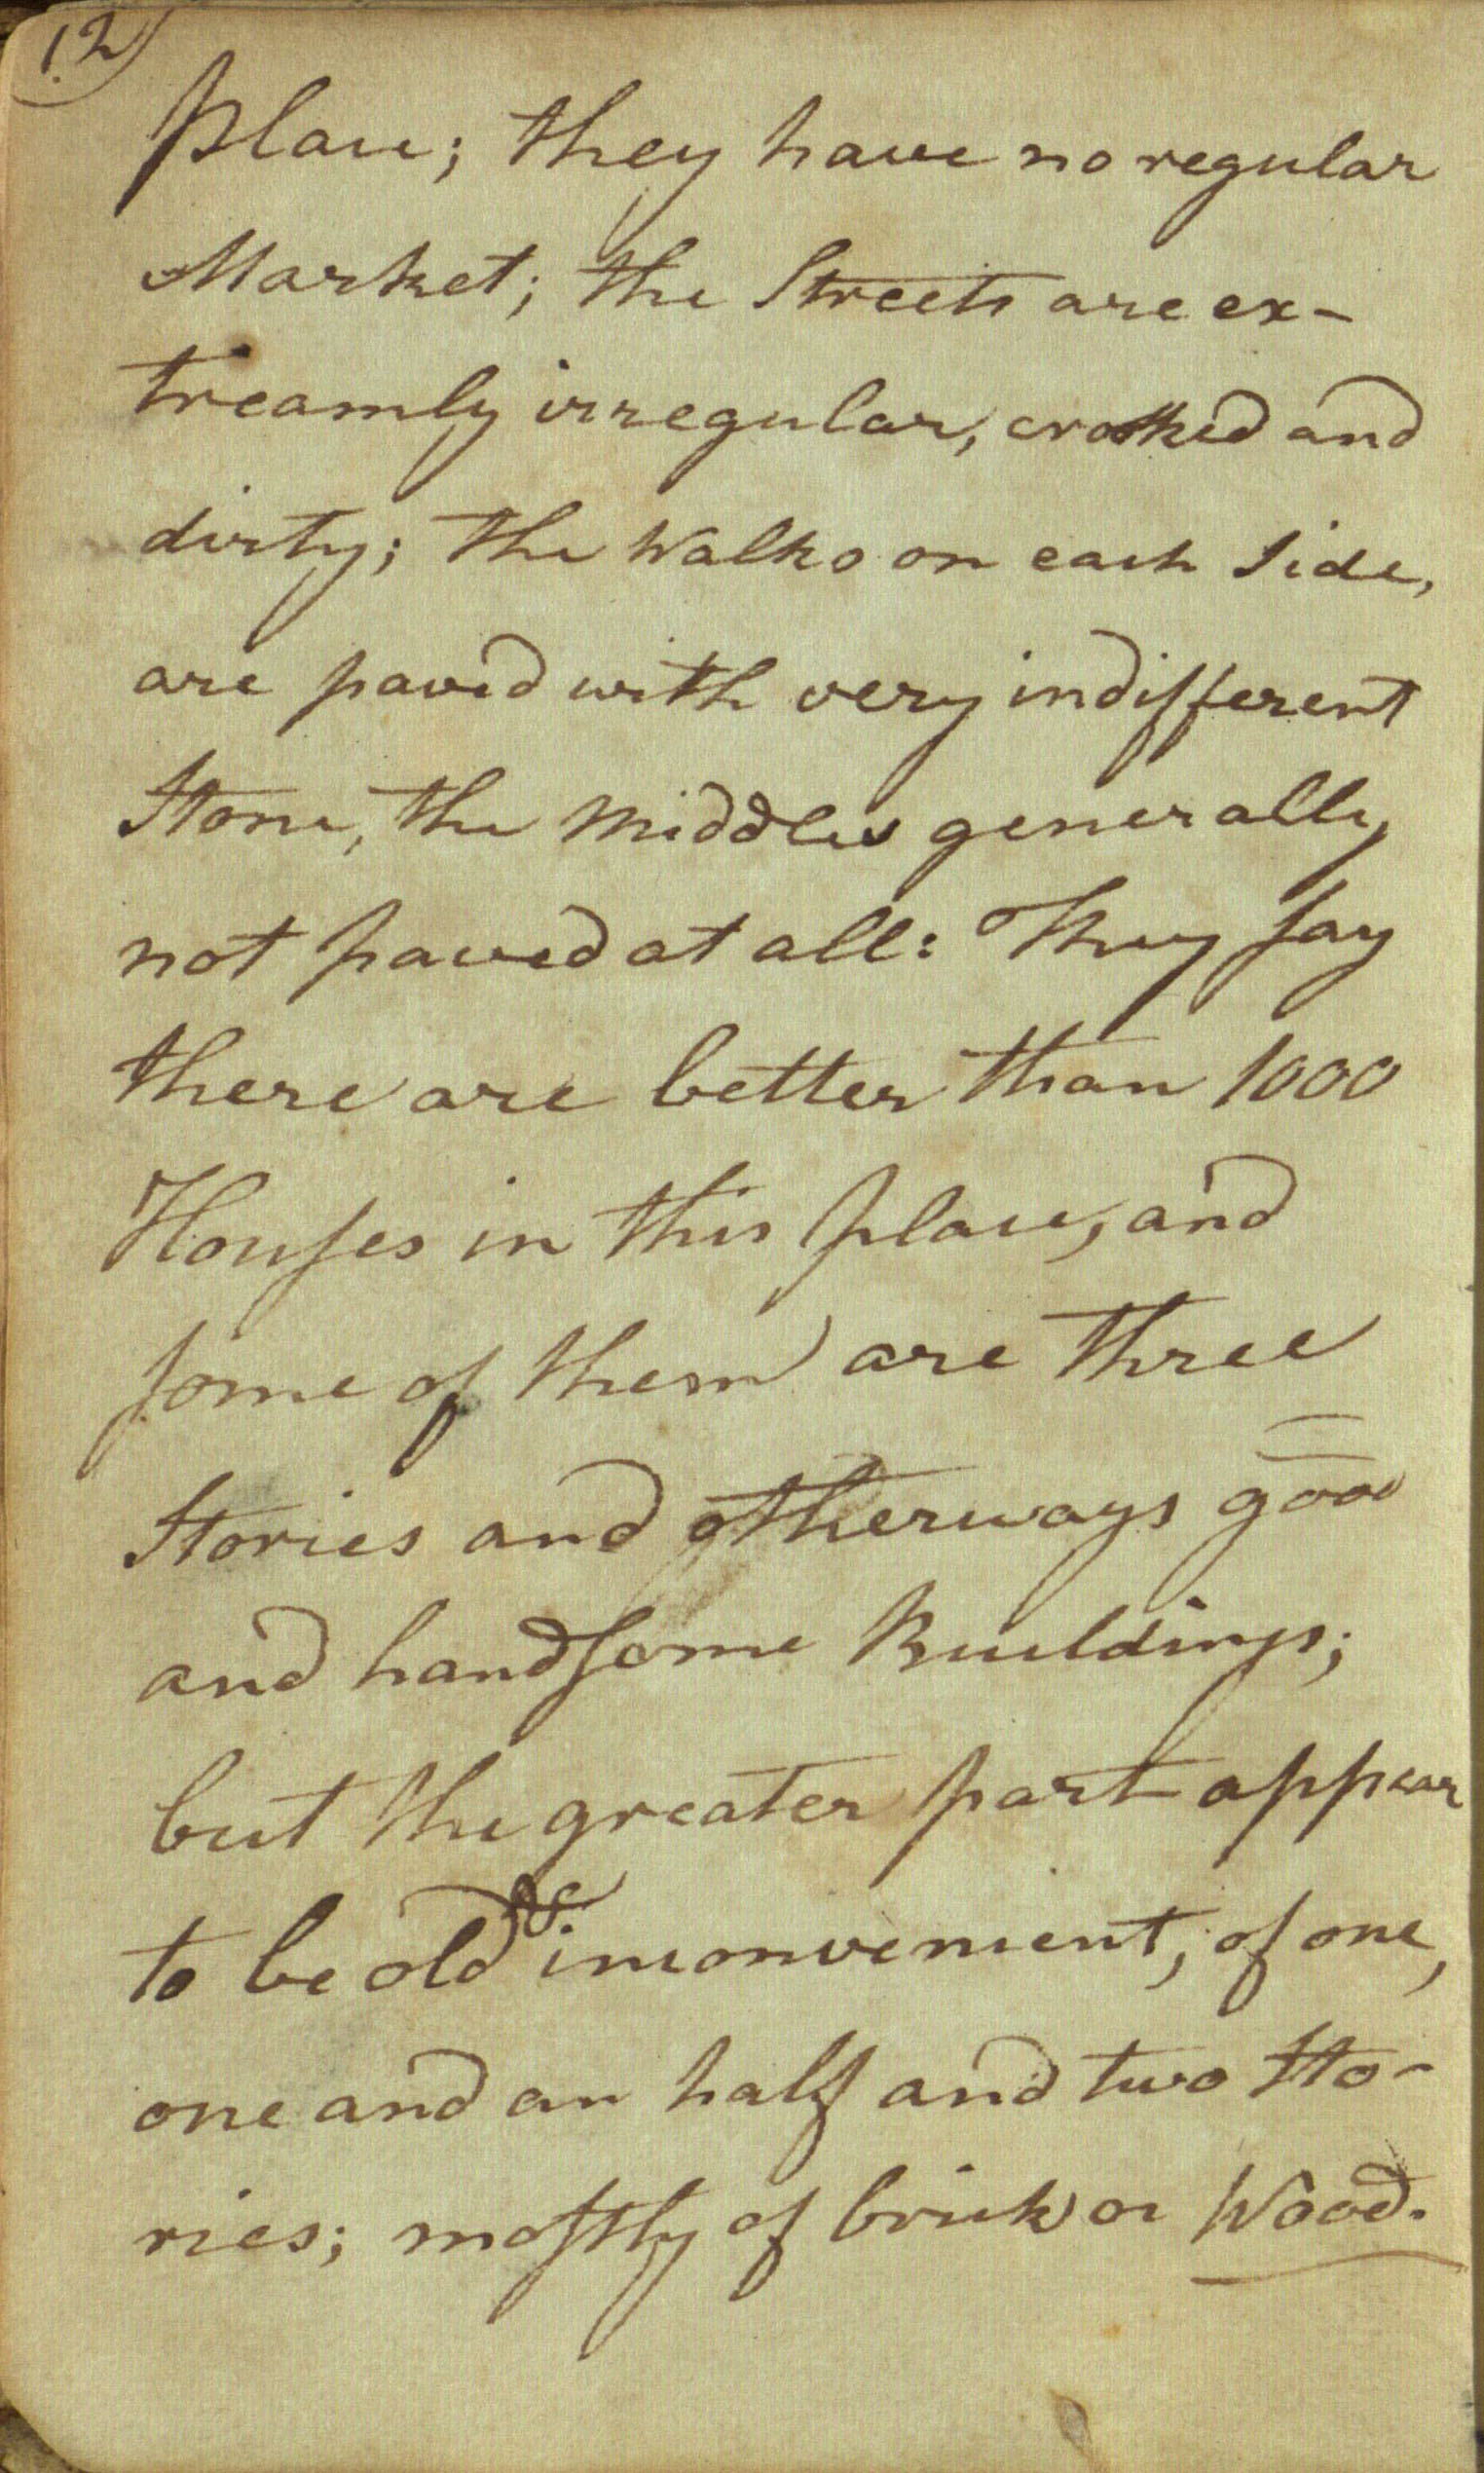 12
place; they have no regular
Market; the Streets are ex-
treamly irregular, crooked and
dirty; the Walks on each Side,
are paved with very indifferent
Stone, the middles generally
not paved at all: They say
there are better than 1000
Houses in this place, and
some of them are three
Stories and otherways good
and handsome Buildings;
but the greater part appear
to be old & inconvenient, of one,
one and an half and two Sto-
ries; mostly of brick or Wood.